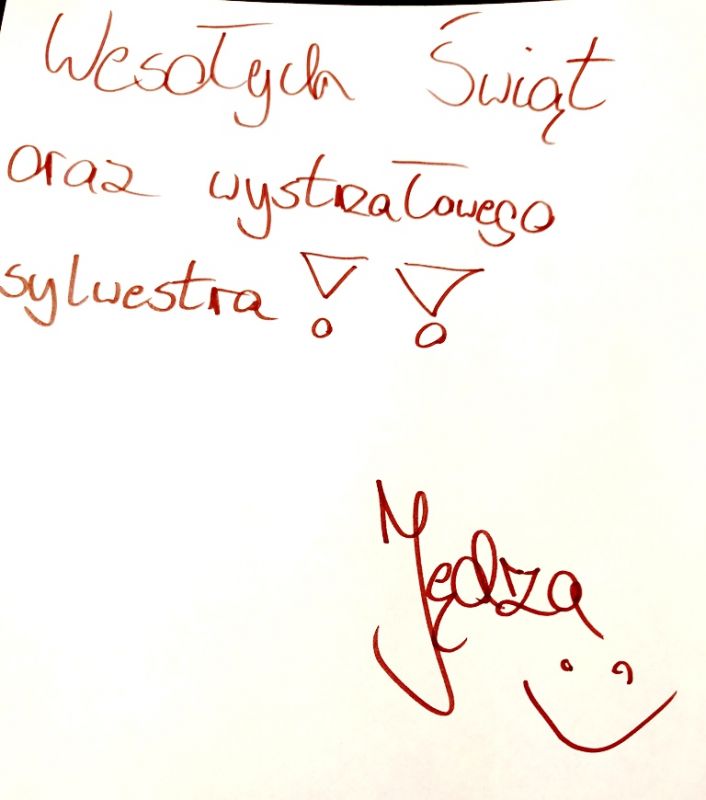 Wesołych Świąt
oraz wystrzałowego
sylwestra !!
Jędza